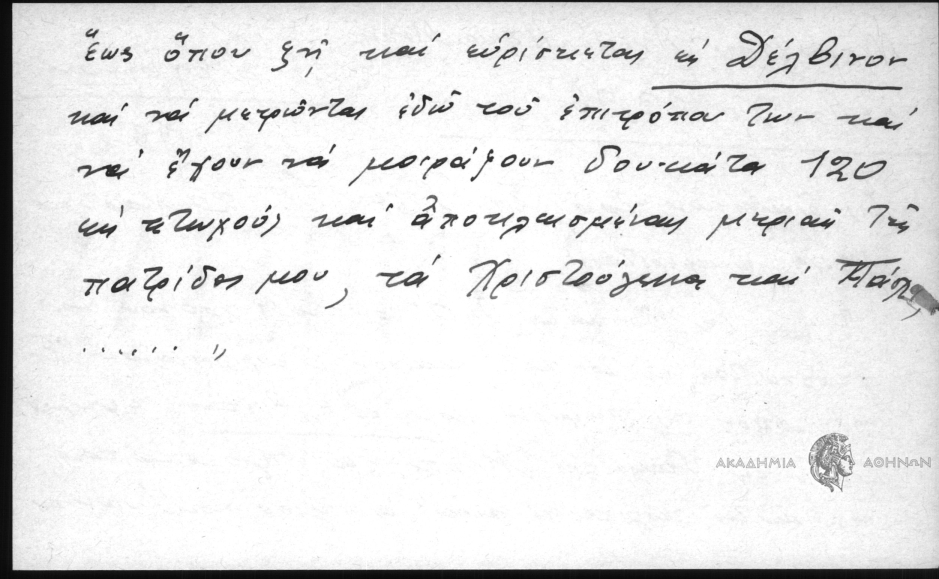 ἕως ὅπου ζῆ καί εὑρίσκεται εἰς Δέλβινον
καί νά μετρῶνται ἐδῶ τοῦ ἐπιτρόπου των καί
νά ἔχουν νά μοιράζουν δουκάτα 120
εἰς πτωχούς καί ἀποκλεισμένας μεριαῖς τῆς
πατρίδος μου, τά Χριστούγεννα καί
........"
ΑΚΑΔΗΜΙΑ ΑΘΗΝΩΝ